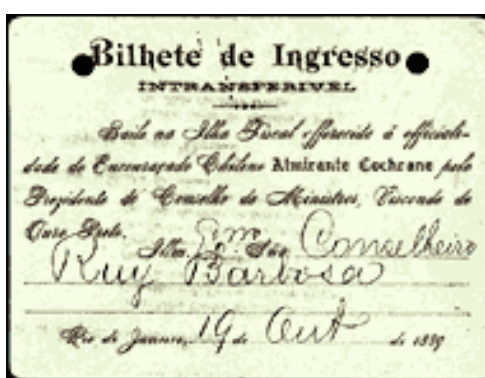 Bilhete de Ingresso
INTRANSFERIVEL
Baile na Ilha Fiscal offerecido á officiali-
dade do Encouraçado Chileno Almirante Cochrane pelo
Prezidente do Conselho de Ministros, Visconde de
Ouro Preto.
Illmo. Exmo. Snr. Conselheiro
Ruy Barbosa
Rio de Janeiro, 19 de Out de 1889